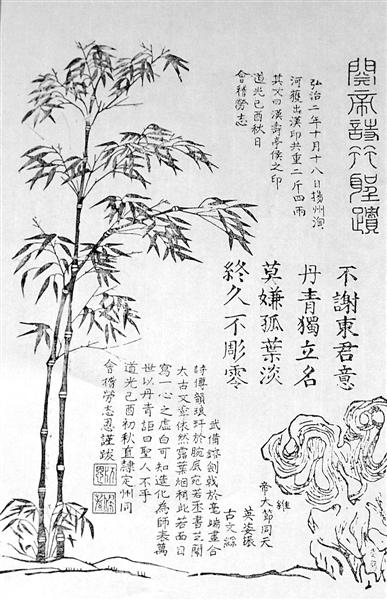 關帝詩竹聖蹟
弘治二年十月十八日揚州淘
河獲出漢印共重二斤四兩
其文曰漢壽亭侯之印
道光己酉秋日
會稽勞志
不謝東君意
丹青獨立名
莫嫌孤葉淡
終久不彫零
維
帝大節同天
英姿振
古文綜
武備戟於毫端畫合
詩傳韻琅玕於腕底宛若書芝閣
太古文章依然露葉烟梢此若面目
寫一心之虛白可知造化為師表萬
世以丹青詎曰聖人不手
道光己酉初秋直隸定州同
會稽勞志忍謹跋